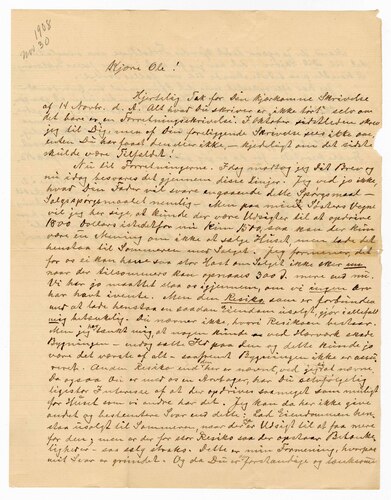 1908
Nov. 30
Kjære Ole!
Hjertelig Tak for Din kjærkomne Skrivelse
af 14 Novbr. d. A. Alt hvad Du skriver er ikke tørt selv om
det bare er en Forretningsskrivelse. I Oktober sidstleden skrev
jeg til Dig, men af Den foreliggende Skrivelse sees ikke om
enten Du har faaet den eller ikke, — kjedeligt om det sidst
skulde være Tilfældet!
Nu til Forretningerne. Idag modtog jeg Dit Brev og
nu idag besvares det gjennem disse Linjer. Jeg ved jo ikke,
hvad Din Fader vil svare angaaende dette Spørgsmaal —
Salgsspørgsmaalet nemlig. — Men paa min Søsters Vegne
vil jeg her sige, at kunde der være Udsigter til at opdrive
1800 Dollars istedetfor nu kun 1500, saa kan der kun
være en Mening om ikke at sælge Huset, men lade det
henstaa til Sommeren med Salget. Jeg formener, det
for os ei kan have saa stor Hast om Salget ikke sker nu,
naar der tilsommers kan opnaaes 300 $. mere end nu.
Vi har jo maattet slaa os igjennem, om vi ingen Arv
har havt ivente. Men den Risiko som er forbunden
ved at lade henstaa en saadan Eiendom usolgt, gjør isaafald
mig betænkelig. Du nævner ikke, hvori Risikoen bestaar.
Men jeg har tænkt mig, at nogen kunde af ved Hærværk skade
Bygningen — endog sætte Ild paa den og dette kunde jo
være det værste af alt — saafremt Bygningen ikke er assu-
reret. Anden Risiko end her er nævnt, ved jeg jo at nævne.
Da ogsaa Du er med som Arvtager, har Du selvfølgelig
ligesaa Interesse af at der opdrives saa meget som muligt
for Huset som vi andre har det. Jeg kan da her ikke give
andet og bestemtere Svar end dette: Lad Eiendommen hen-
staa usolgt til Sommeren, naar der er Udsigt til at faa mere
for den; men er der for stor Risiko saa der opstaar Betænke-
ligheder — saa sælg straks. Dette er min Formening, hvorpaa
mit Svar er grundet. Og da Du er forstandige og tænksomme